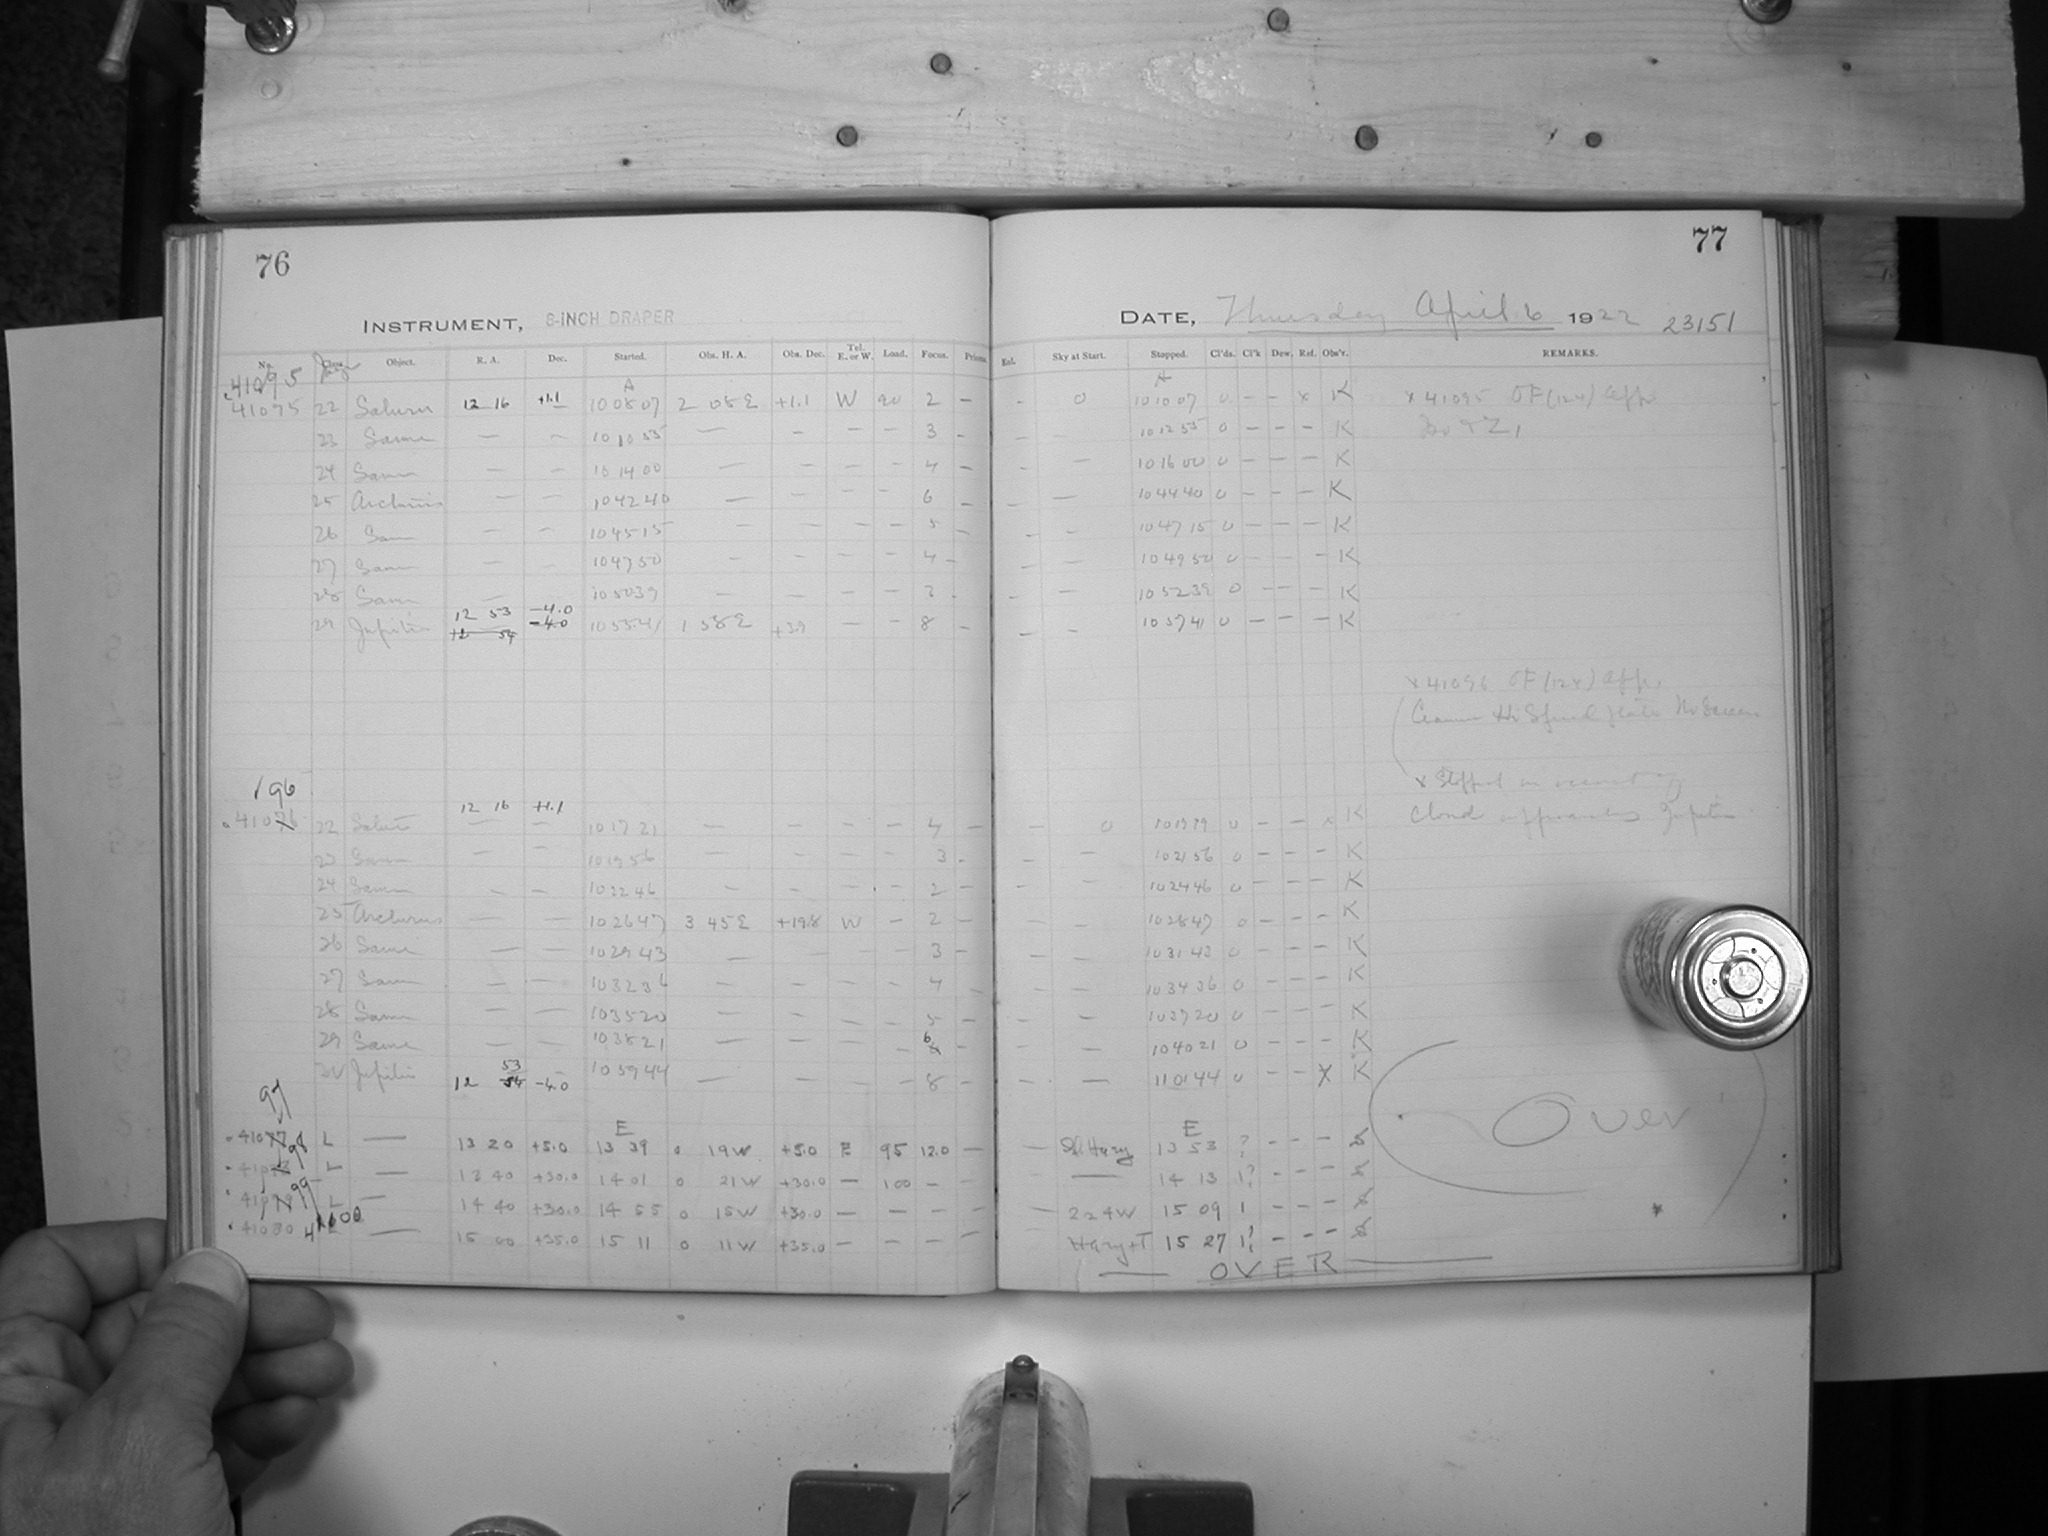 76
77
INSTRUMENT, 8-INCH DRAPER
DATE, Thursday April 6 1922 23151
No. Class Object. R. A. Dec. Started. Obs. H. A. Obs. Dec. Tel. E. or W. Load. Focus. Prisms. Eol. Sky at Start. Stopped. Cl'ds. Cl'k Dew. Ref. Obs'r. REMARKS.
A A
41095 22 Saturn 12 16 +1.1 10 08 07 2 08 E +1.1 W 90 2 – – 0 10 10 07 0 – – x K x 41095
23 Same — – 10 10 55 — – – – 3 – – – 10 12 55 0 – – – K
24 Same – – 10 14 00 – – – – 4 – – – 10 16 00 0 – – – K
25 Arcturus – – 10 42 40 — – – – 6 – – — 10 44 40 0 – – – K
26 Same – – 10 45 15 – – – – 5 – – – 10 47 15 0 – – – K
27 Same – – 10 47 50 – – – – 4 – – – 10 49 50 0 – – – K
28 Same – 10 50 39 – – – – 3 – – – 10 52 39 0 – – – K
12 53 -4.0
29 Jupiter 12 54 -4.0 10 55 41 1 58 E +3.9 – – 8 – – – 10 57 41 0 – – – K
x 41096
x Stopped on account of
Cloud approaching Jupiter
196
12 16 +1.1
4107 22 Saturn — – 10 17 21 – – – – 4 – – 0 0 – – x K
23 Same – – 10 19 56 – – – – 3 – – – 10 21 56 0 – – – K
24 Same – – 10 22 46 – – – – 2 – – – 10 24 46 0 – – – K
25 Arcturus – – 10 26 47 3 45 E +19.8 W – 2 – – – 10 28 47 0 – – – K
26 Same – – 10 29 43 – – – – 3 – – – 10 31 43 0 – – – K
27 Same – – 10 32 36 – – – – 4 – – – 10 34 36 0 – – – K
28 Same – – 10 35 20 – – – – 5 – – – 10 37 20 0 – – – K
29 Same – – 10 38 21 – – – – 6 – – 10 40 21 0 – – – K
53
30 Jupiter 12 54 -4.0 10 59 44 – – – – 8 – – – 11 01 44 0 – – X K
Over
97
E E
41077 L — 13 20 +5.0 13 39 0 19 W +5.0 E 95 12.0 – – Sl. Hazy 13 53 ? – – –
98 L — 13 40 +30.0 14 01 0 21 W +30.0 – 100 – – — 14 13 1? – – –
99 L — 14 40 +30.0 14 55 0 15 W +30.0 – – – – – 224W 15 09 1 – – –
41080 41100 L — 15 00 +35.0 15 11 0 11 W +35.0 – – – – Hazy+T 15 27 1? – – –
OVER